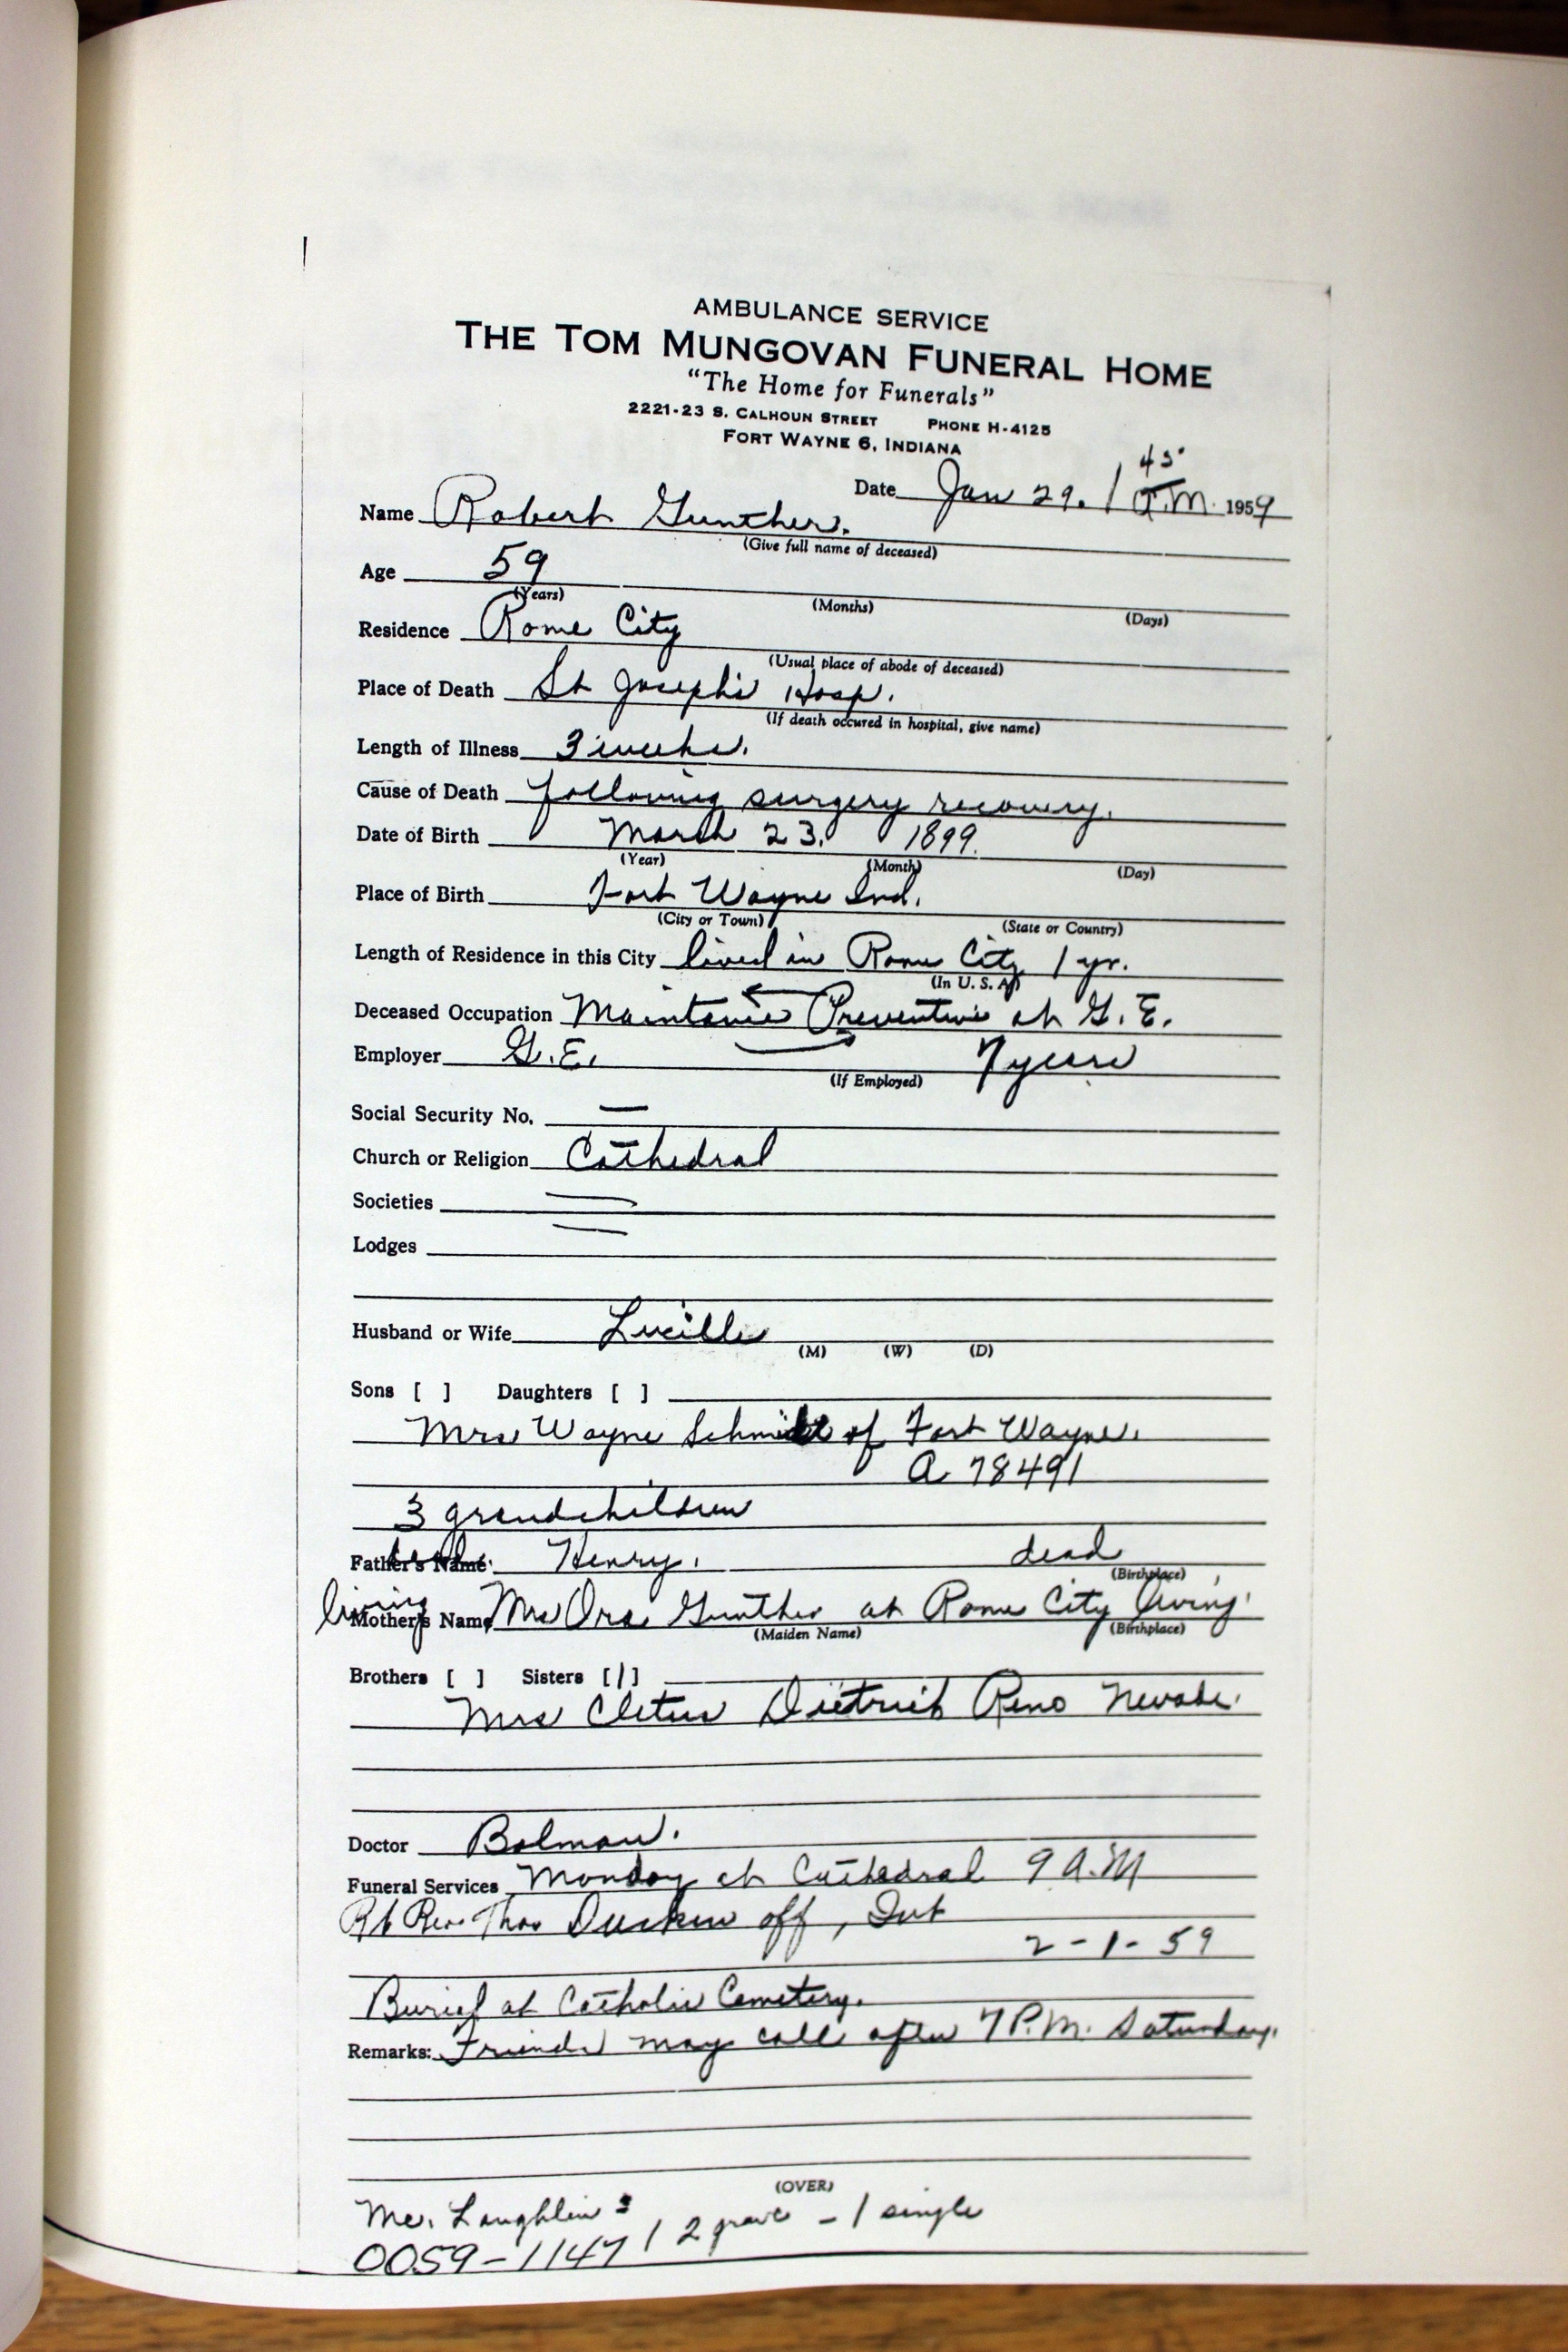 AMBULANCE SERVICE
THE TOM MUNGOVAN FUNERAL HOME
"The Home for Funerals"
2221-23 S. CALHOUN STREET PHONE H-4125
FORT WAYNE 6, INDIANA
45
Date Jan 29. 1 A.M. 1959
Name Robert Gunther.
(Give full name of deceased)
Age 59
(Years) (Months) (Days)
Residence Rome City
(Usual place of abode of deceased)
Place of Death St Joseph's Hosp.
(If death occured in hospital, give name)
Length of Illness 3 weeks.
Cause of Death following surgery recovery.
Date of Birth March 23. 1899.
(Year) (Month) (Day)
Place of Birth Fort Wayne Ind.
(City or Town) (State or Country)
Length of Residence in this City lived in Rome City 1 yr.
(In U. S. A.)
Deceased Occupation Preventive at G.E.
Employer G.E. 7 years
(If Employed)
Social Security No. —
Church or Religion Cathedral
Societies —
Lodges —
Husband or Wife Lucille
(M) (W) (D)
Sons [ ] Daughters [ ]
Mrs Wayne Schmidt of Fort Wayne.
A 78491
3 grandchildren
Father's Name Henry. dead
(Birthplace)
living
Mother's Name Mrs Ora Gunther at Rome City living
(Maiden Name) (Birthplace)
Brothers [ ] Sisters [1]
Mrs Cletus Dietrich Reno Nevada.
Doctor Bolman.
Funeral Services Monday at Cathedral 9 A.M
Rt Rev Thos Durkin off,
2-1-59
Burial at Catholic Cemetery.
Remarks: Friends may call after 7 P.M. Saturday.
(OVER)
Mc. Laughlin
0059-1147 / 2 grave - 1 single